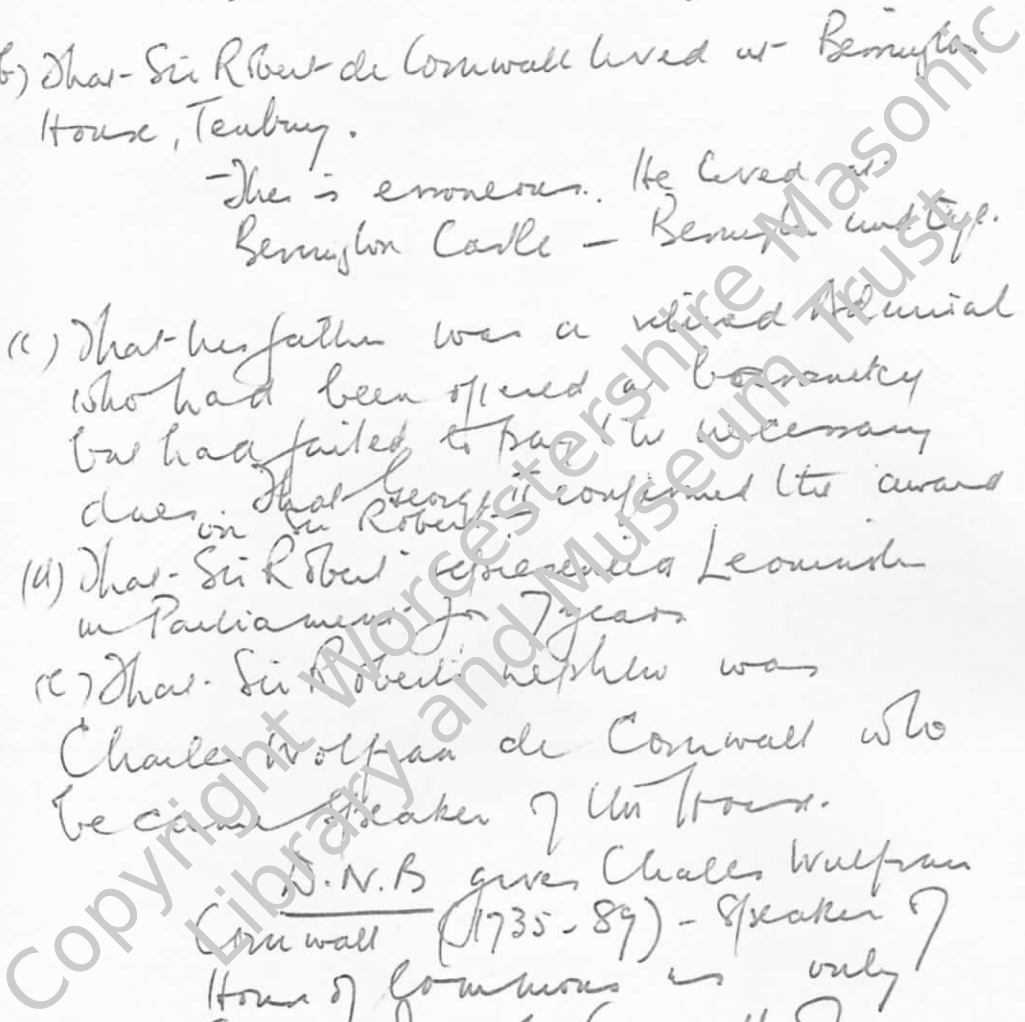 b) That Sir Robert de Cornwall lived at Berrington
House, Tenbury.
- This is erroneous. He lived at
Berrington Castle — Berrington
(c) That his father was a retired Admiral
who had been offered a baronetcy
but had failed to pay the necessary
dues. That George II confirmed the award
on Sir Robert.
(d) That Sir Robert represented Leominster
in Parliament for 7 years
(e) That Sir Robert's nephew was
Charles Wolfran de Cornwall who
became Speaker of the House.
D.N.B gives Charles Wulfran
Cornwall (1735-89) - Speaker of
House of Commons as only
Copyright Worcestershire Masonic
Library and Museum Trust